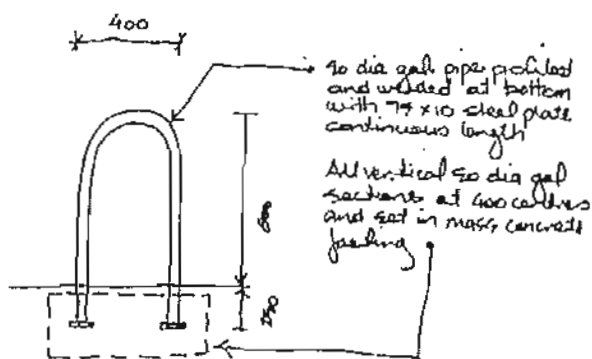 400
50 dia gal. pipe profiled
and welded at bottom
with 75 x 10 steel plate
continuous length
All vertical 50 dia gal
sections at 400 centres
and set in mass concrete
footing